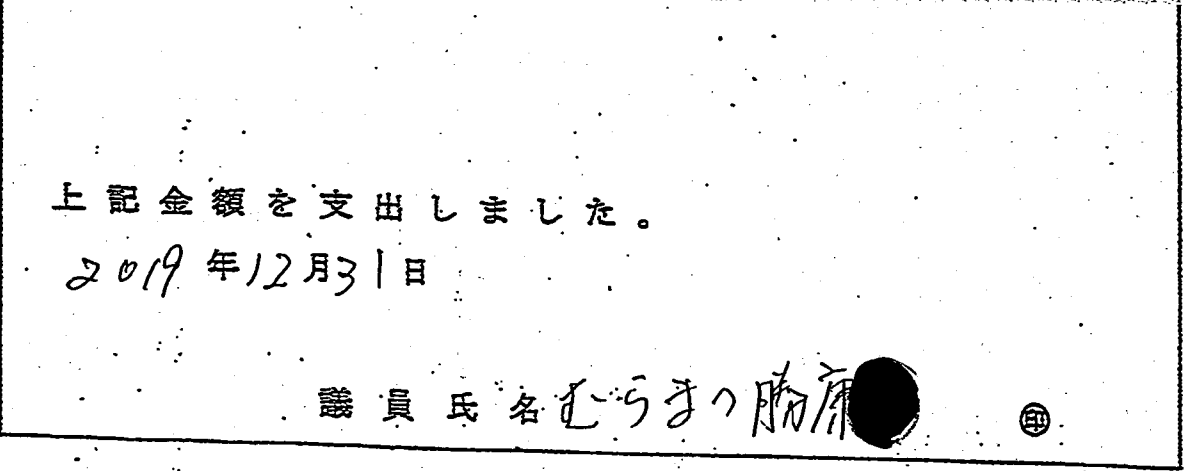 上記金額を支出しました。
2019年12月31日
議員氏名 むらまつ勝康 ㊞